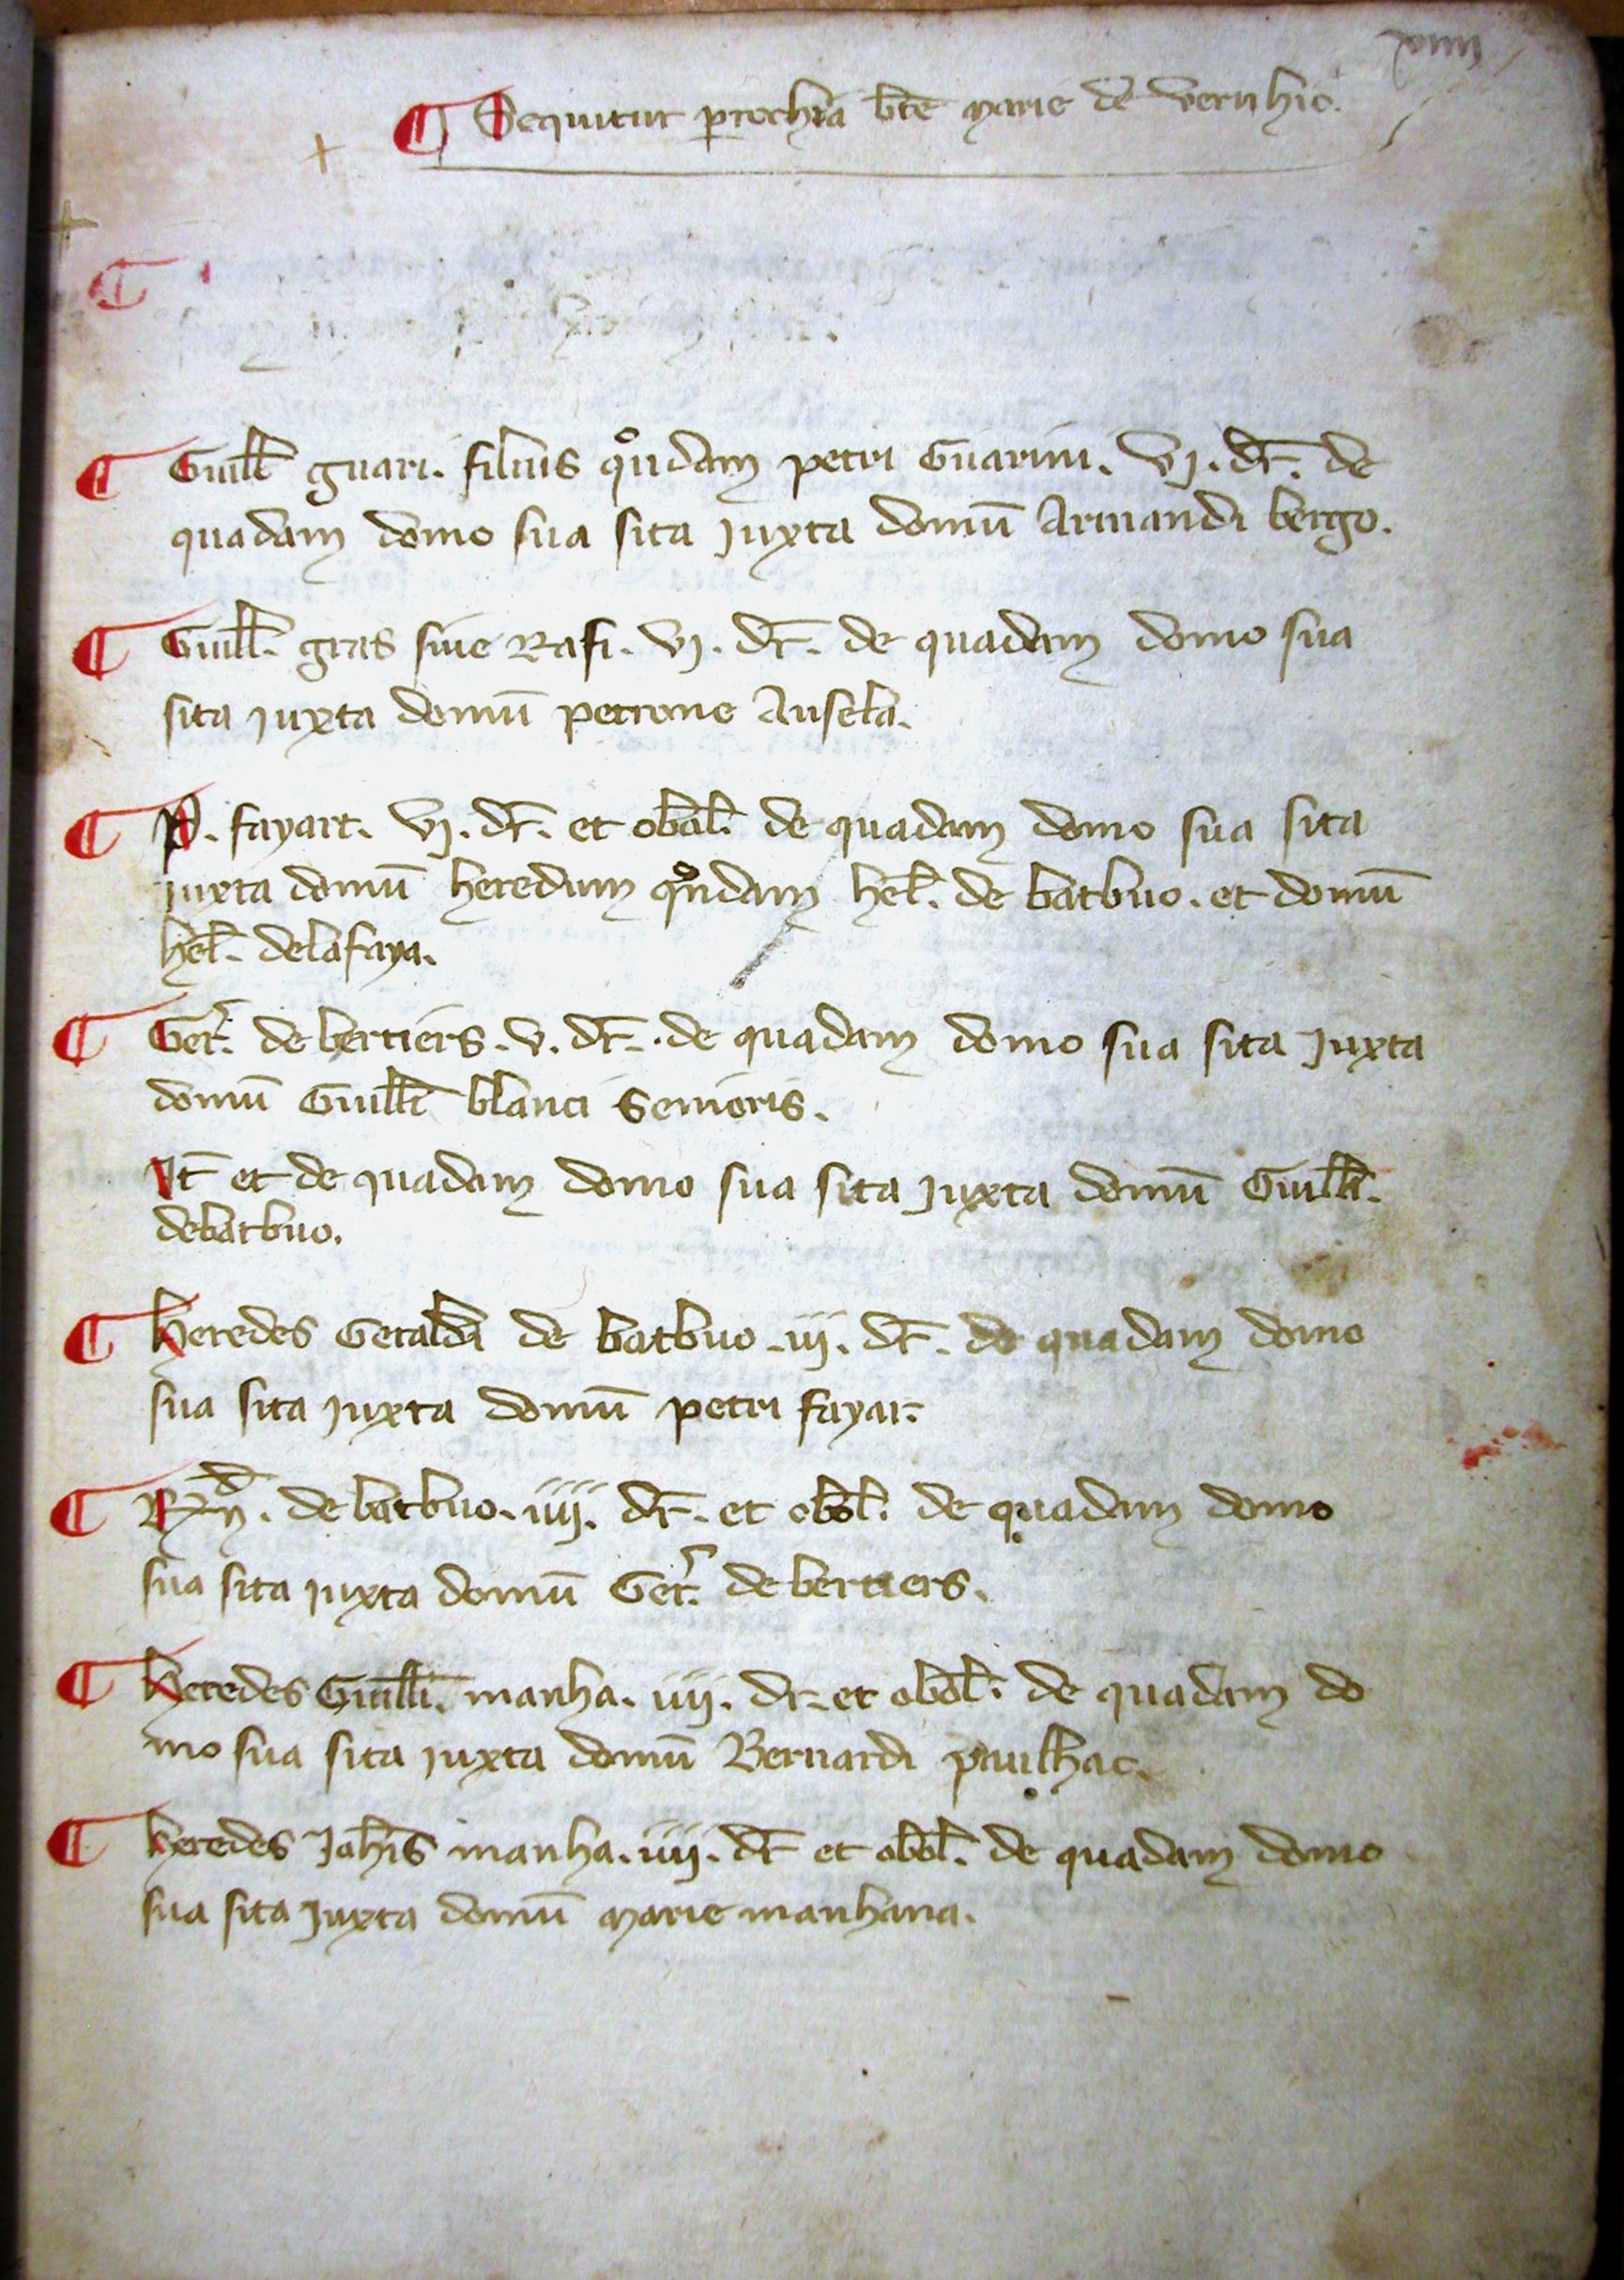 xviii
¶ Sequitur ꝑrochia bt̄e marie de vernhio.
¶ Guill̄i guari. filius qͦndam petri Guarini. vj. dr̄. de
quadam domo sua sita juxta domū Armandi bergo.
¶ Guill̄. gras siue Rafi. vj. dr̄. de quadam domo sua
sita juxta domū petrone Ansela.
¶ P. fayart. vj. dr̄. et obol̄. de quadam domo sua sita
juxta domū heredum qͦndam hel̄. de batbuo. et domū
hel̄. delafaya.
¶ Ger̄. de bertiers. v. dr̄. de quadam domo sua sita juxta
domū Guill̄i blanci senioris.
It̄ et de quadam domo sua sita juxta domū Guill̄i.
debatbuo.
¶ Heredes Geraldi de batbuo. iij. dr̄. de quadam domo
sua sita juxta domū petri fayar.
¶ Rẏᵈ. de batbuo. iiij. dr̄. et obol̄. de quadam domo
sua sita juxta domū Ger̄. de bertiers.
¶ Heredes Guill̄i. manha. iiij. dr̄. et obol̄. de quadam do
mo sua sita juxta domū Bernardi paulhac.
¶ Heredes Joh̄is manha. iiij. dr̄ et obol̄. de quadam domo
sua sita juxta domū marie manhana.